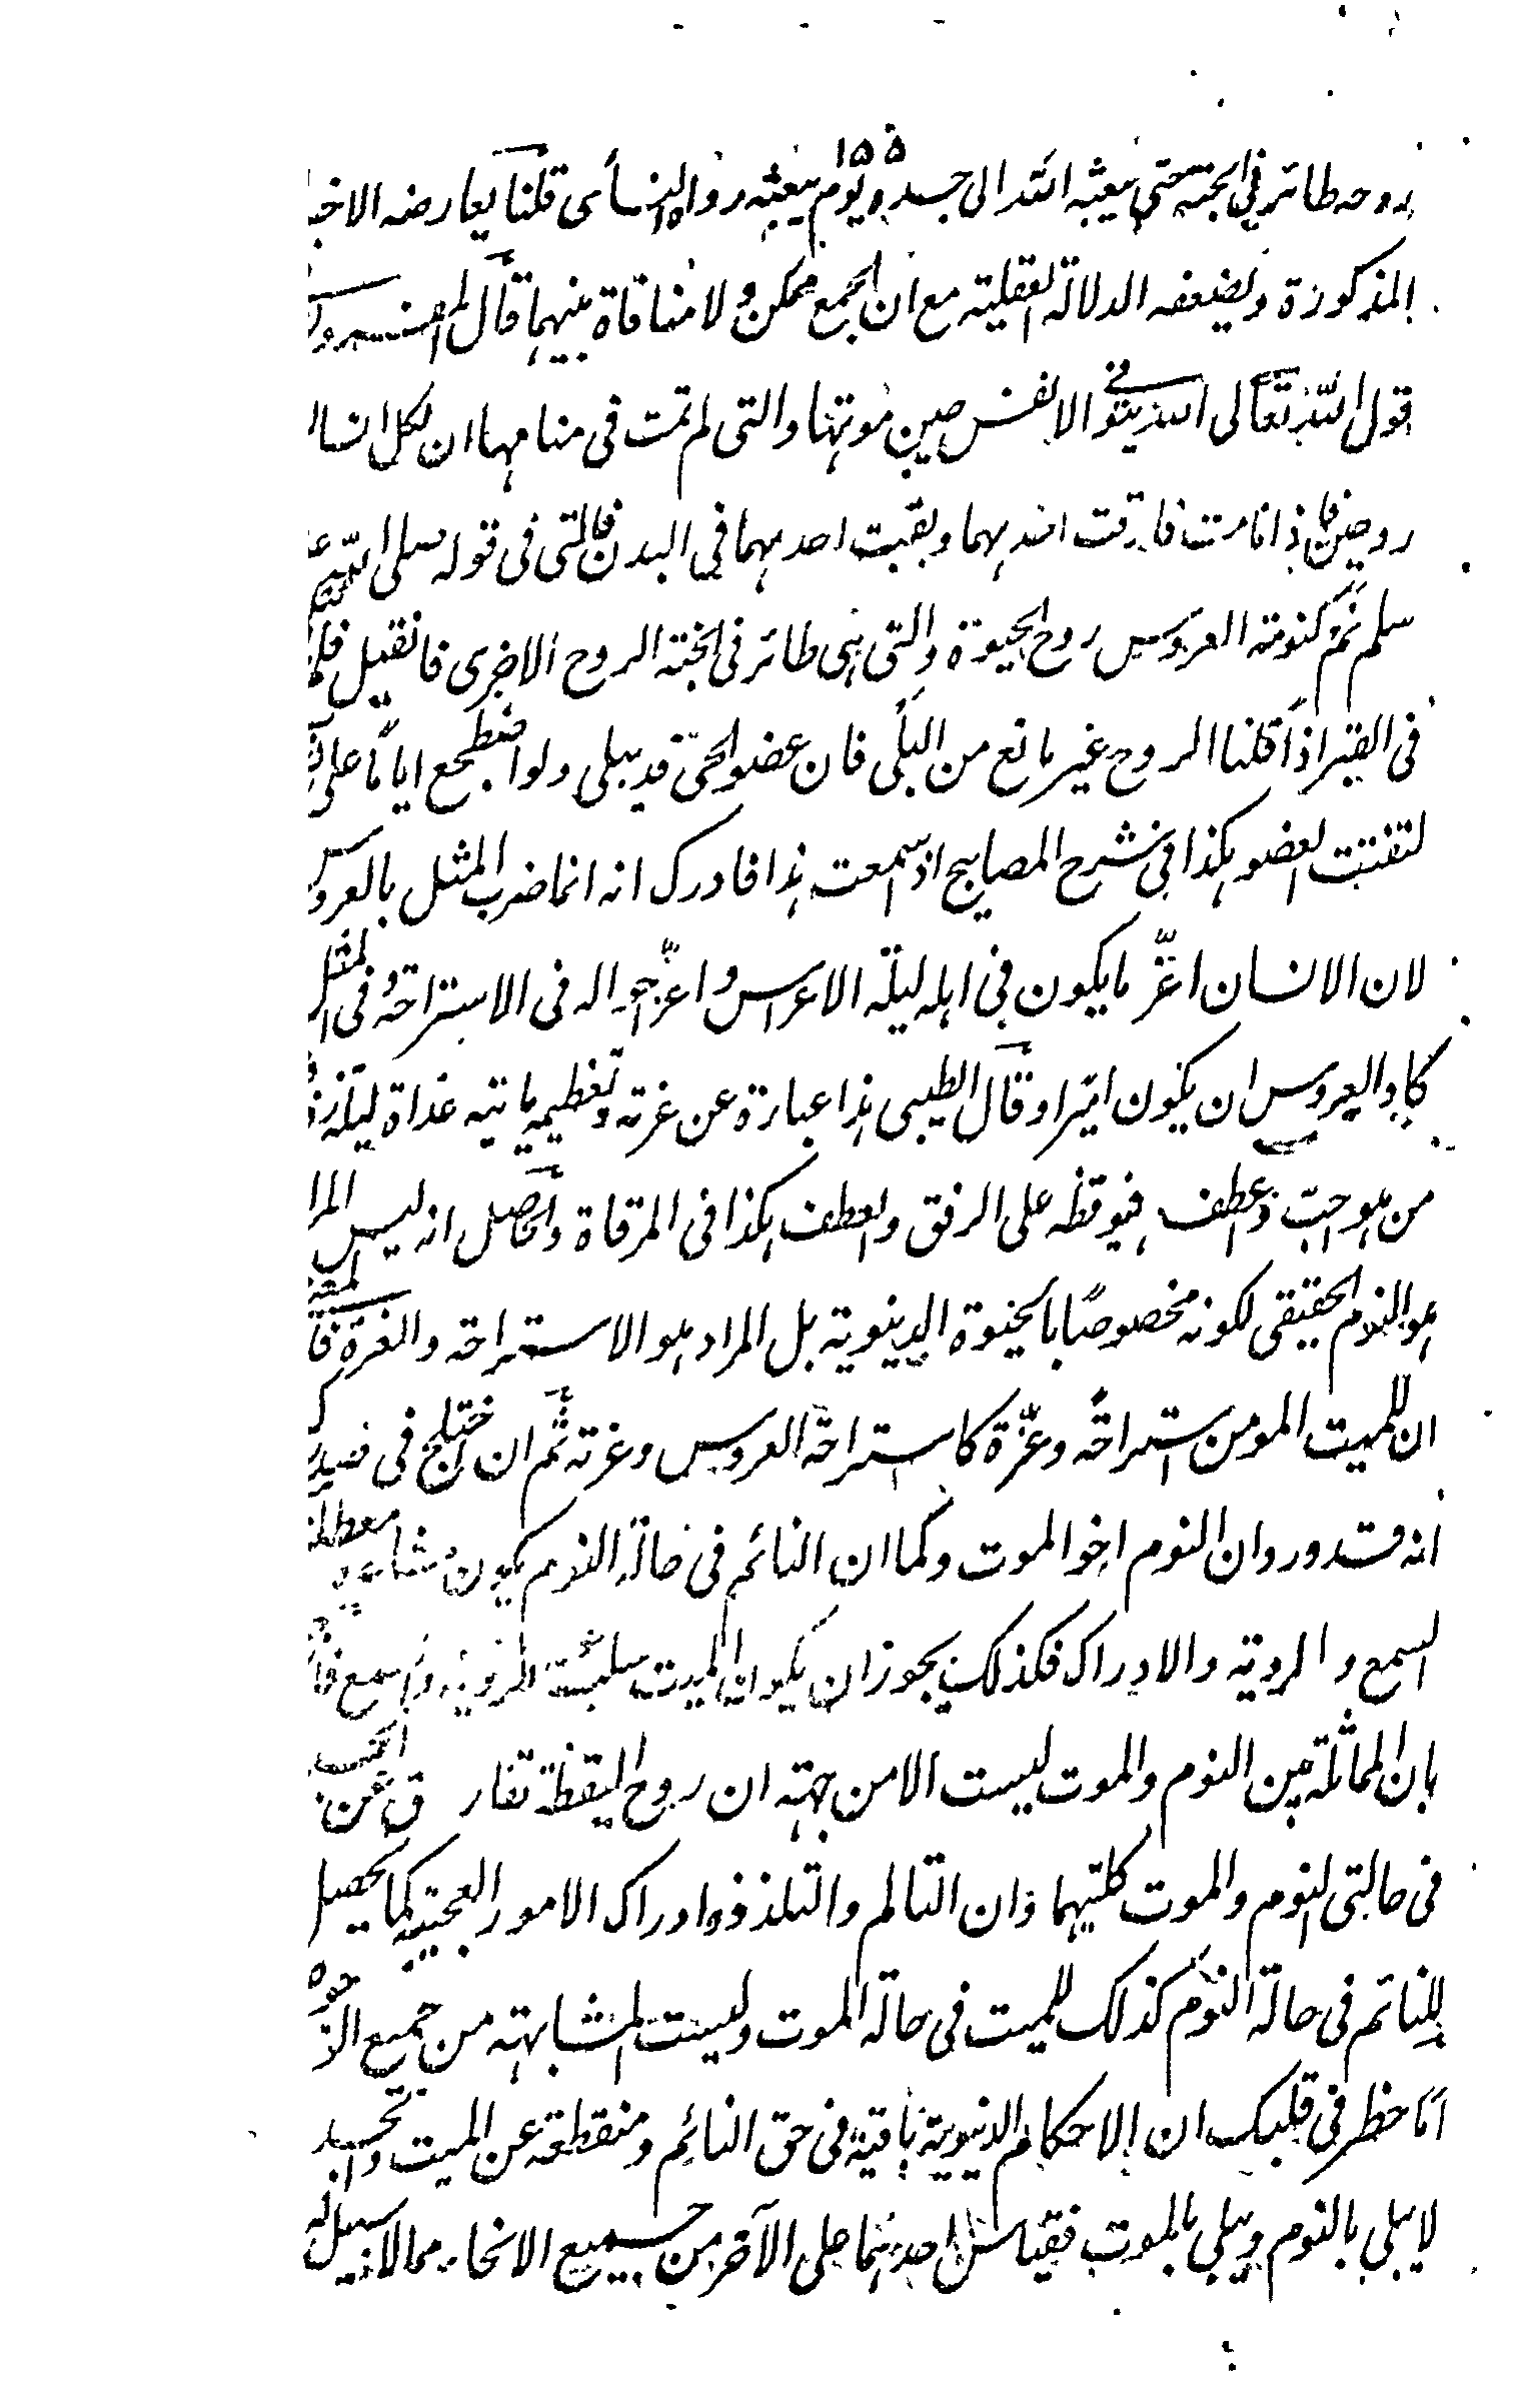 ١٥٥
روحه طائر في الجنة حتى يبعثه الله الى جسده يوم يبعثه رواه النسأى قلنا يعارضه الاخبا
المذكورة ويضعفه الدلالة العقلية مع ان الجمع ممكن ولا منافاة بينهما قال المفسرون
قول الله تعالى الله يتوفى الانفس حين موتها والتى لم تمت فى منامها ان لكل انسا
روحين فاذا نامت فارقت احدهما وبقيت احدهما في البدن فالتى فى قوله صلى الله عليه
سلم نم كنومة العروس روح الحيوة والتى هى طائر فى الجنة الروح الاخرى فان قيل
فى القبر اذا قلنا الروح غير مانع من البلى فان عضو الحى قد يبلى ولو اضطجع اياما على
لتفتتت العضو هكذا فى شرح المصابيح اذا سمعت هذا فادرك انه انما ضرب المثل بالعروس
لان الانسان اعز ما يكون فى اهله ليلة الاعراس واعز احواله فى الاستراحة وفى المثل
كاد العروس ان يكون اميرا وقال الطيبى هذا عبارة عن عزته وتعظيمه ياتيه غداة ليلة
من هو احب واعطف فيوقظه على الرفق والعطف هكذا فى المرقاة والحاصل انه ليس المرا
هو النوم الحقيقى لكونه مخصوصًا بالحيوة الدنيوية بل المراد هو الاستراحة والعزة
ان للميت المومن استراحةً وعزّة كاستراحة العروس وعزته ثم ان اختلج فى صدرك
انه قد ورد ان النوم اخو الموت وكما ان النائم فى حالة النوم يكون مشاعره معطلة
السمع والروية والادراك فكذلك يجوز ان يكون الميت الروية والسمع
بان المماثلة بين النوم والموت ليست الا من جهة ان روح اليقظة تفارق عن الجسد
فى حالتى النوم والموت كلتيهما وان التالم والتلذذ وادراك الامور العجيبة كما يحصل
للنائم فى حالة النوم كذلك للميت فى حالة الموت وليست المشابهة من جميع الوجوه
اما خطر فى قلبك ان الاحكام الدنيوية باقية فى حق النائم ومنقطعة عن الميت والجسد
لا يبلى بالنوم ويبلى بالموت فقياس احدهما على الآخر من جميع الانحاء مما لا سبيل له